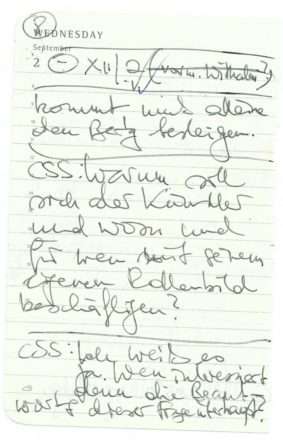 8
WEDNESDAY
September
2 - XII / 2 (vorm. Wilhelm?)
kommt und alleine
den Berg besteigen.
CSS: Warum soll
sich der Künstler
und wozu und
für wen mit seinem
eigenen Rollenbild
beschäftigen?
CSS: Ich weiß es
ja. Wen interessiert
denn die Beant-
wortg dieser Frage überhaupt?